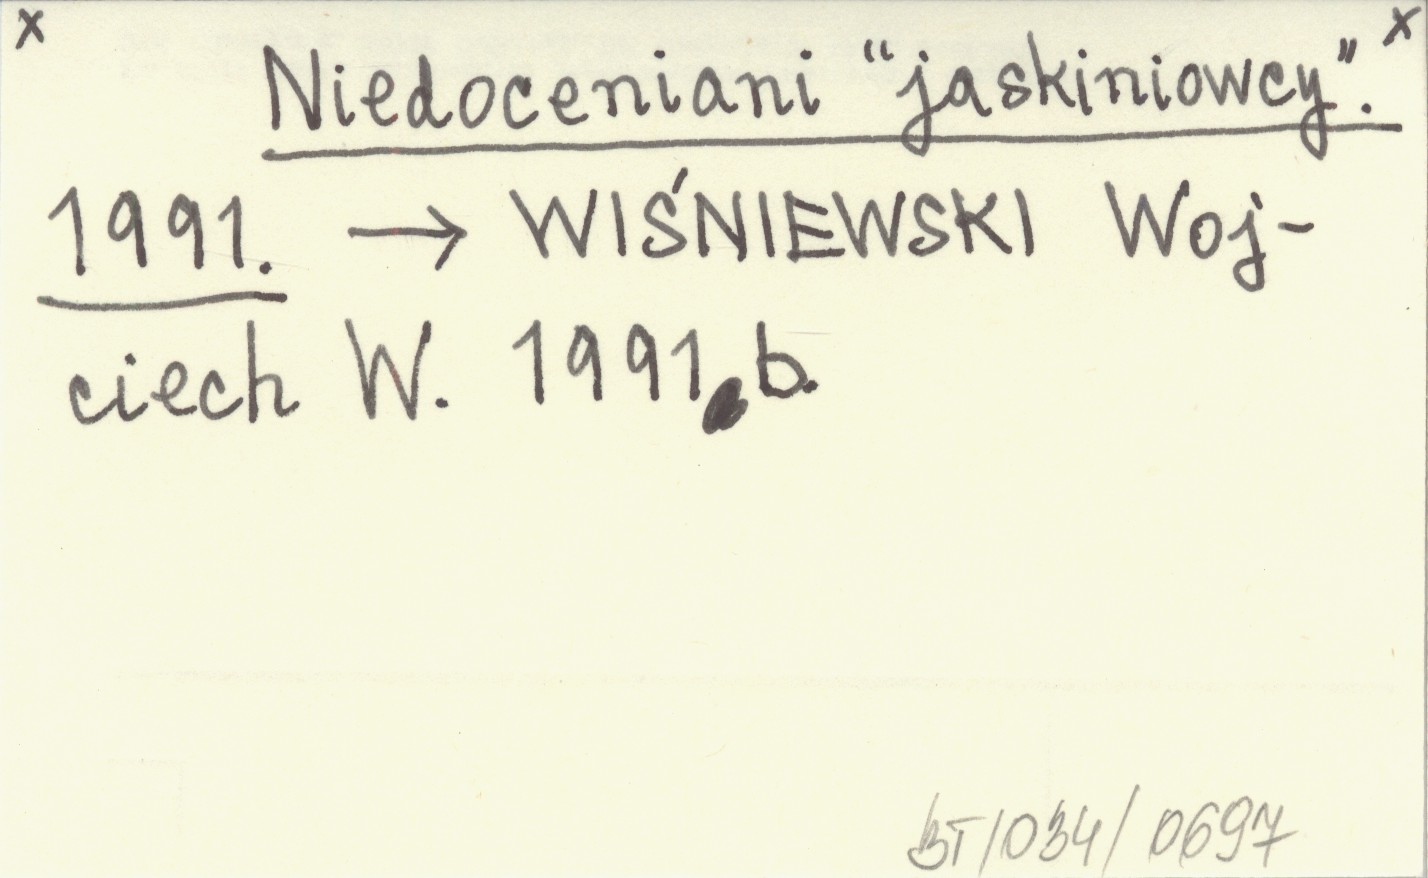 x x
Niedoceniani "jaskiniowcy".
1991. → WIŚNIEWSKI Woj-
ciech W. 1991 b.
BT/034/0697